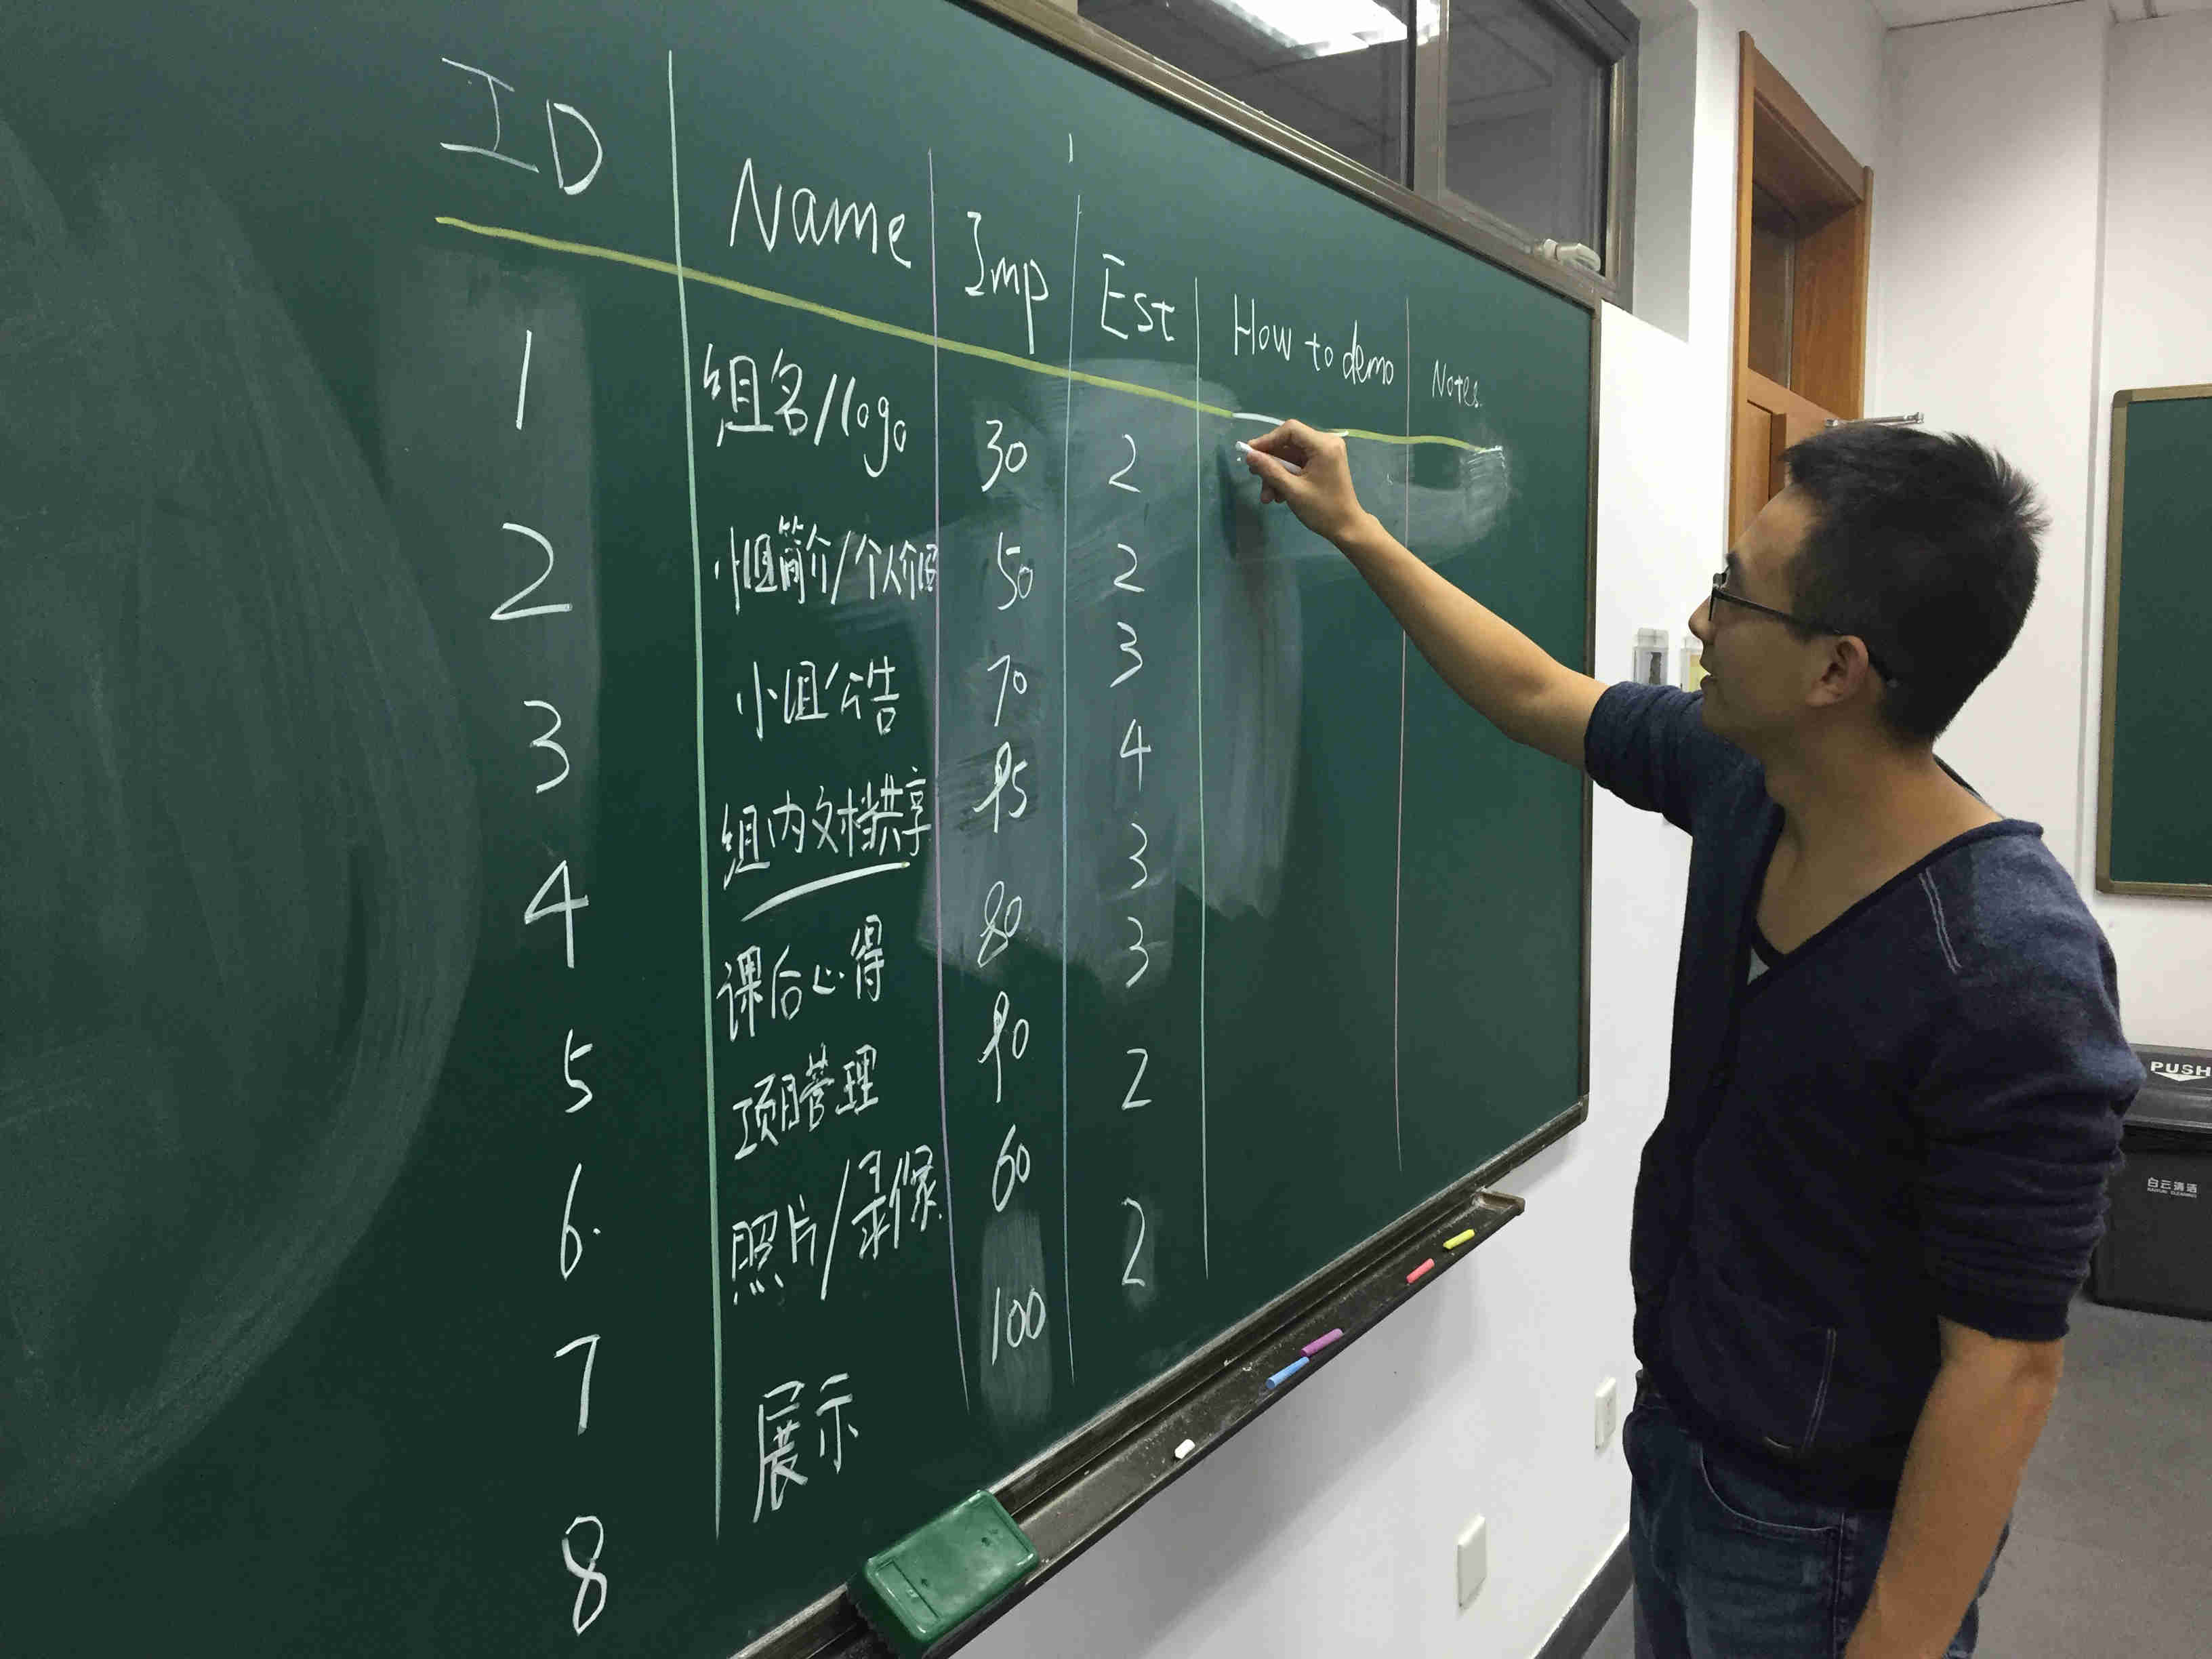 ID Name Imp Est How to demo Notes
1 组名/logo 30 2
2 小组简介/个人介绍 50 2
3 小组公告 70 3
4 组内文档共享 95 4
5 课后心得 80 3
6 项目管理 90 3
7 照片/录像 60 2
8 展示 100 2
PUSH
白云清洁
BAIYUN CLEANING